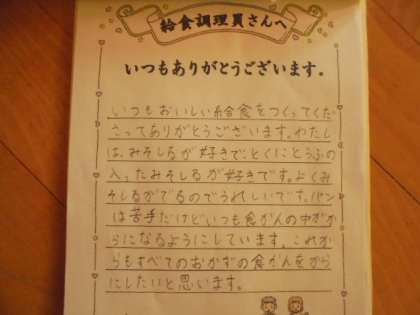 給食調理員さんへ
いつもありがとうございます。
いつもおいしい給食をつくってくだ
さってありがとうございます。わたし
は、みそしるが好きでとくにとうふの
入ったみそしるが好きです。よくみ
そしるがでるのでうれしいです。パン
は苦手だけどいつも食かんの中がか
らになるようにしています。これか
らもすべてのおかずの食かんをから
にしたいと思います。